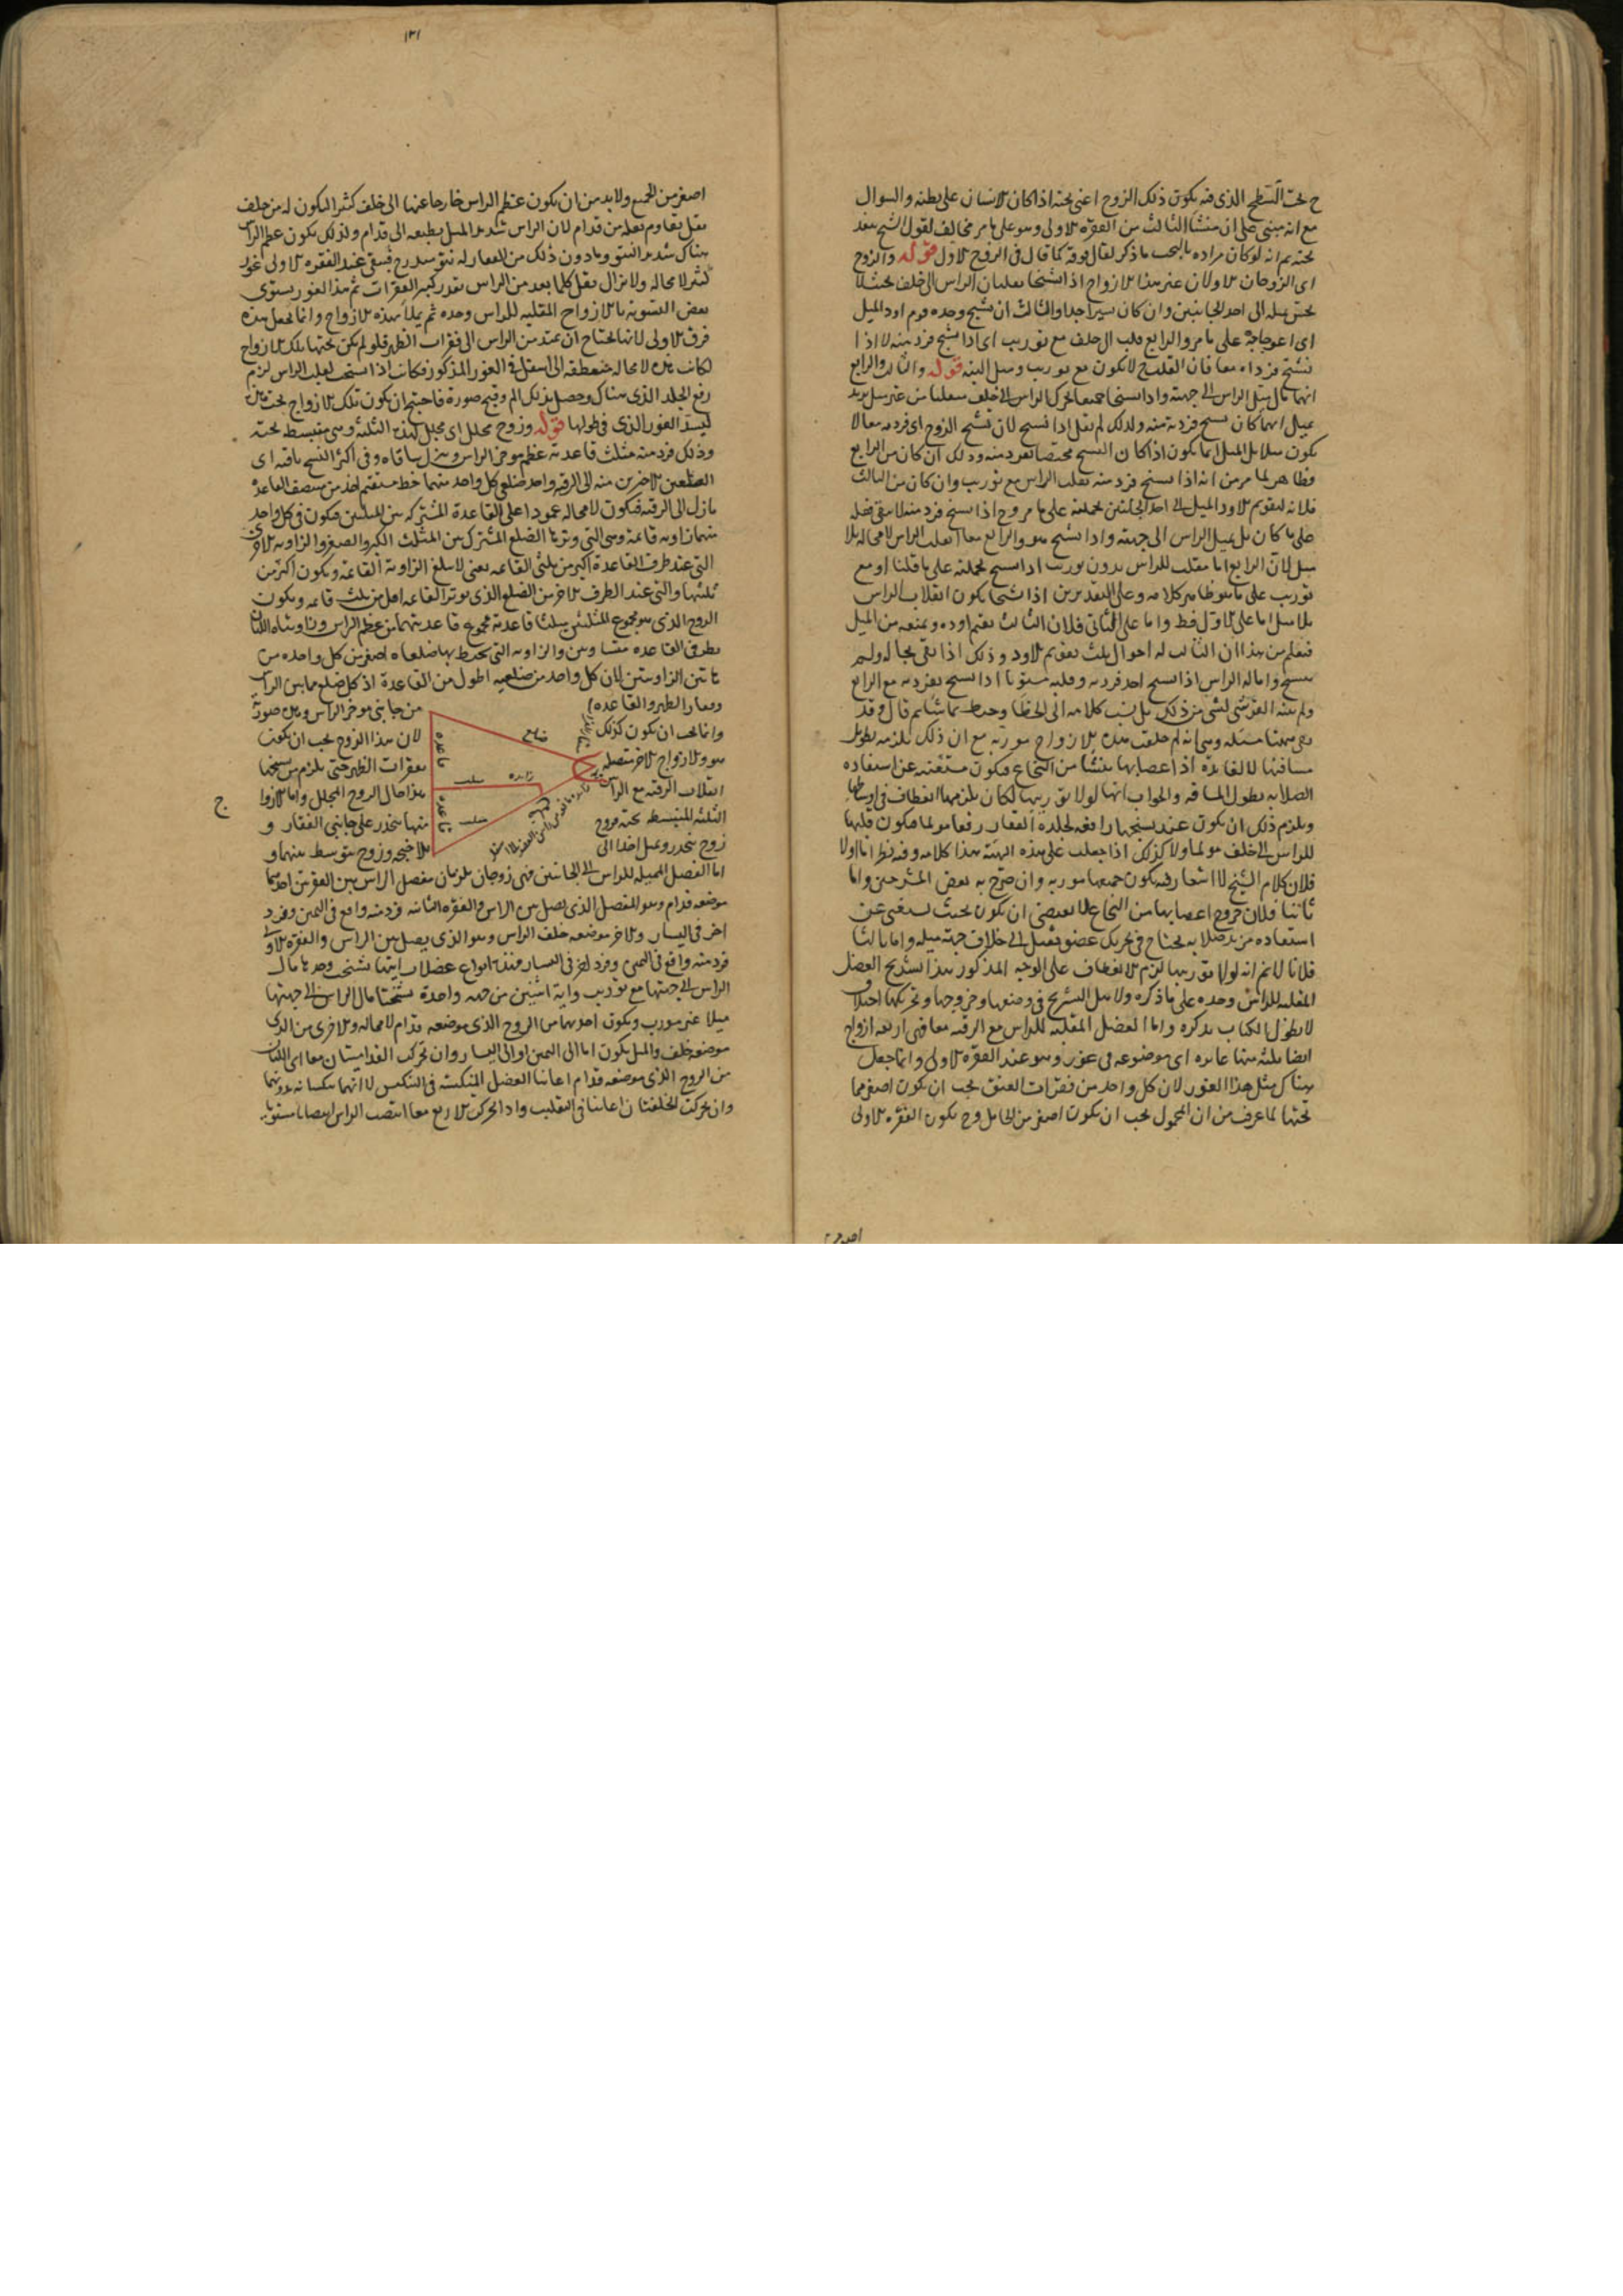 تحت السطح الذى فيه يكون ذلك الزوج اعنى تحته اذا كان الانسان على بطنه والسوال
مع انه مبنى على ان منشأ الثالث من الفقرة الاولى وهو على ما مر مخالف لقول الشيخ بعد
تحته ثم انه لو كان مراده ما ذكر لقال فوقه كما قال فى الزوج الاول قوله والزوج
اى الزوجان الاولان من هذا الازواج اذا تشنجا يقلبان الراس الى خلف بحيث لا
يحس ميله الى احد الجانبين وان كان يسيرا جدا والثالث ان تشنج وحده قوم اود الميل
اى اعوجاجه على ما مر والرابع يقلب الى خلف مع توريب اى اذا تشنج فرد منه لا اذا
تشنج فرداه معا فان القلب ح لا يكون مع توريب وميل البتة قوله والثالث والرابع
ايهما مال ميل الراس الى جهته واذا تشنجا جميعا تحرك الراس الى خلف منقلبا من غير ميل يريد
يميل ايهما كان تشنج فرد منه ولذلك لم يقل اذا تشنج لان تشنج الزوج اى فرديه معا لا
يكون مميلا بل الميل انما يكون اذا كان التشنج مختصا بفرد منه وذلك ان كان من الرابع
فظاهر لما مر من انه اذا تشنج فرد منه يقلب الراس مع توريب وان كان من الثالث
فلانه ليقوم الاود الميل الى احد الجانبين بجملته على ما مر وح اذا تشنج فرد منه لا يبقى فعله
على ما كان بل يميل الراس الى جهته واذا تشنج هو والرابع معا انقلب الراس لا محالة بلا
ميل لان الرابع اما مقلب للراس بدون توريب اذا تشنج بجملته على ما قلنا او مع
توريب على ما هو ظاهر كلامه وعلى التقديرين اذا تشنجا يكون انقلاب الراس
بلا ميل اما على الاول فظ واما على الثانى فلان الثالث يقيم اوده ويمنعه من الميل
فيعلم من هذا ان الثالث له احوال ثلث تقويم الاود وذلك اذا بقى بحاله ولم
يتشنج وامالة الراس اذا تشنج احد فرديه وقلبه مستويا اذا تشنج بفرديه مع الرابع
ولم يتنبه القرشى لشى من ذلك بل نسب كلامه الى الخطا وحمله ما شا ثم قال وقد
بقى ههنا مسئلة وهى انه لم خلقت هذه الازواج موربة مع ان ذلك يلزمه تطويل
مسافتها لا لفايدة اذ اعصابها منشأ من النخاع فتكون مستغنية عن استفادة
الصلابة بطول المسافة والجواب انها لولا توريبها لكان يلزمها انعطاف فى اوساطها
ويلزم ذلك ان يكون عند تشنجها رافعة لجلدة الفقار رفعا مولما فيكون قلبها
للراس الى خلف مولما ولا كذلك اذا جعلت على هذه الهيئة هذا كلامه وفيه نظر اما اولا
فلان كلام الشيخ لا اشعار فيه بكون جميعها موربة وان صرح به بعض المشرحين واما
ثانيا فلان خروج اعصابها من النخاع لا يقتضى ان يكون بحيث يستغنى عن
استفادة مزيد صلابة يحتاج فى تحريك عضو ثقيل الى خلاف جهة ميله واما ثالثا
فلانا لا نم انه لولا توريبها لزم الانعطاف على الوجه المذكور هذا تشريح العضل
المقلبة للراس وحده على ما ذكره ولاهل التشريح فى وضعها وخروجها وتحريكها اختلاف
لا يطول الكتاب بذكره واما العضل المقلبة للراس مع الرقبة معا فهى اربعة ازواج
ايضا ثلثة منها غايرة اى موضوعة فى غور وهو عند الفقرة الاولى وانما جعل
هناك مثل هذا الغور لان كل واحد من فقرات العنق يجب ان يكون اصغر مما
تحتها لما عرف من ان المحمول يجب ان يكون اصغر من الحامل وح يكون الفقرة الاولى
١٣١
اصغر من الجميع ولا بد من ان يكون عظم الراس خارجا عنها الى خلف كثيرا ليكون له من خلف
ثقل يقاوم ثقله من قدام لان الراس شديد الميل بطبعه الى قدام ولذلك يكون عظم الراس
هناك شديد النتو وما دون ذلك من الفقار له نتو متدرج فيبقى عند الفقرة الاولى غور
كثير لا محالة ولا يزال يقل كلما بعد من الراس بقدر كبر الفقرات ثم هذا الغور يستوى
بعض التسوية بالازواج المقلبة للراس وحده ثم يملأ بهذه الازواج وانما تجعل هذه
فوق الاولى لانها تحتاج ان تمتد من الراس الى فقرات الظهر فلو لم يكن تحتها تلك الازواج
لكانت هذه لا محالة منعطفة الى اسفل فى الغور المذكور فكانت اذا تشنجت لقلب الراس لزم
رفع الجلد الذى هناك وحصل بذلك الم وقبح صورة فاحتيج ان يكون تلك الازواج تحت هذه
ليسد الغور الذى فى طولها قوله وزوج مجلل اى مجلل لهذه الثلثة وهى منبسطة تحته
وذلك فرد منه مثلث قاعدته عظم موخر الراس وينزل ساقاه وفى اكثر النسخ باقيه اى
الضلعين الاخرين منه الى الرقبة واحد ضلعى كل واحد منهما خط مستقيم اخذ من منتصف القاعدة
نازل الى الرقبة فيكون لا محالة عمودا على القاعدة المشتركة بين المثلثين فيكون فى كل واحد
منهما زاوية قائمة وهى التى وترها الضلع المشترك بين المثلث الكبير والصغير والزاوية الاخرى
التى عند طرف القاعدة اكبر من ثلثى القائمة يعنى لا تبلغ الزاوية القائمة ويكون اكثر من
ثلثيها والتى عند الطرف الاخر من الضلع الذى يوتر القائمة اقل من ثلث قائمة ويكون
الزوج الذى هو مجموع المثلثين مثلثا قاعدته مجموع قاعدتيهما من عظم الراس وزاويتاه اللتان
بطرفى القاعدة متساويتين والزاوية التى يحيط بها ضلعاه اصغر من كل واحدة من
هاتين الزاويتين لان كل واحد من ضلعيه اطول من القاعدة اذ كل ضلع ما بين الراس
وفقار الظهر والقاعدة من جانبى موخر الراس وهذه صورته
وانما يجب ان يكون كذلك لان هذا الزوج يجب ان يكون
هو والازواج الاخر متصلة بفقرات الظهر حتى يلزم من تشنجها
انقلاب الرقبة مع الراس هذا حال الزوج المجلل واما الازواج
الثلثة المنبسطة تحته فزوج منها ينحدر على جانبى الفقار و
زوج ينحدر ويميل اخذا الى الاجنحة وزوج متوسط بينهما و
ضلع
قاعدة
قاعدة
مثلث
مثلث
زايدة
قائمة
ج
اما العضل المميلة للراس الى الجانبين فهى زوجان يلزمان مفصل الراس بين الفقرتين احدهما
موضعه قدام وهو المفصل الذى يصل بين الراس والفقرة الثانية فرد منه واقع فى اليمين وفرد
اخر فى اليسار والاخر موضعه خلف الراس وهو الذى يصل بين الراس والفقرة الاولى
فرد منه واقع فى اليمين وفرد اخر فى اليسار فهذه انواع عضلات ايتها تشنجت وحدها مال
الراس الى جهتها مع توريب واية اثنتين من جهة واحدة تشنجتا مال الراس الى جهتها
ميلا غير مورب ويكون احديهما من الزوج الذى موضعه قدام لا محالة والاخرى من الذى
موضعه خلف والميل يكون اما الى اليمين او الى اليسار وان تحركت القداميتان معا اى اللتان
من الزوج الذى موضعه قدام اعانتا العضل المنكسة فى التنكيس لا انهما تنكسانه بدونها
وان تحركت الخلفيتان اعانتا فى التقليب واذا تحركت الاربع معا انتصب الراس انتصابا مستويا